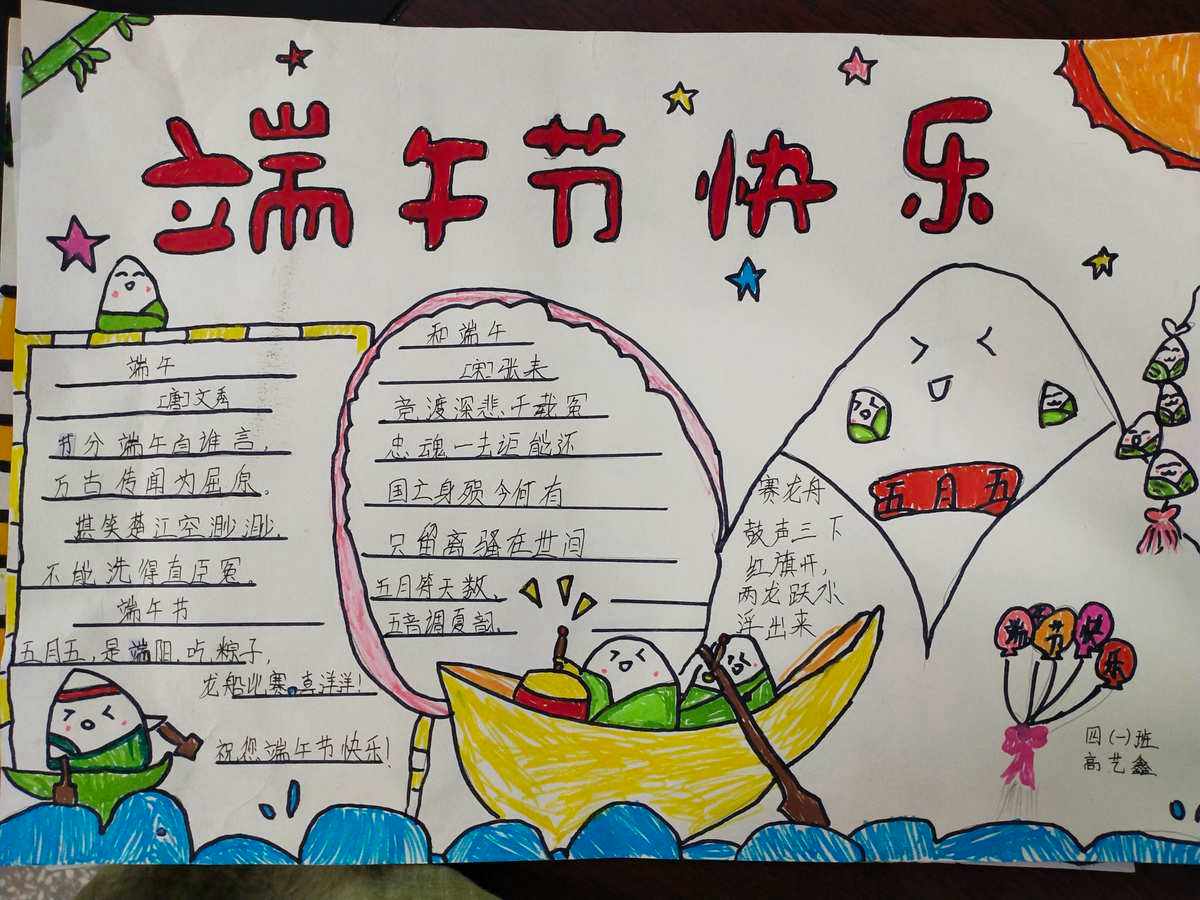 端午节快乐
端午
[唐]文秀
节分端午自谁言,
万古传闻为屈原。
堪笑楚江空渺渺,
不能洗得直臣冤。
端午节
五月五,是端阳,吃粽子,
龙船比赛,喜洋洋!
祝您端午节快乐!
和端午
[宋]张耒
竞渡深悲千载冤
忠魂一去讵能还
国亡身殒今何有
只留离骚在世间
五月符天数,
五音调夏韵.
五月五
赛龙舟
鼓声三下
红旗开,
两龙跃水
浮出来
端节快乐
四(一)班
高艺鑫